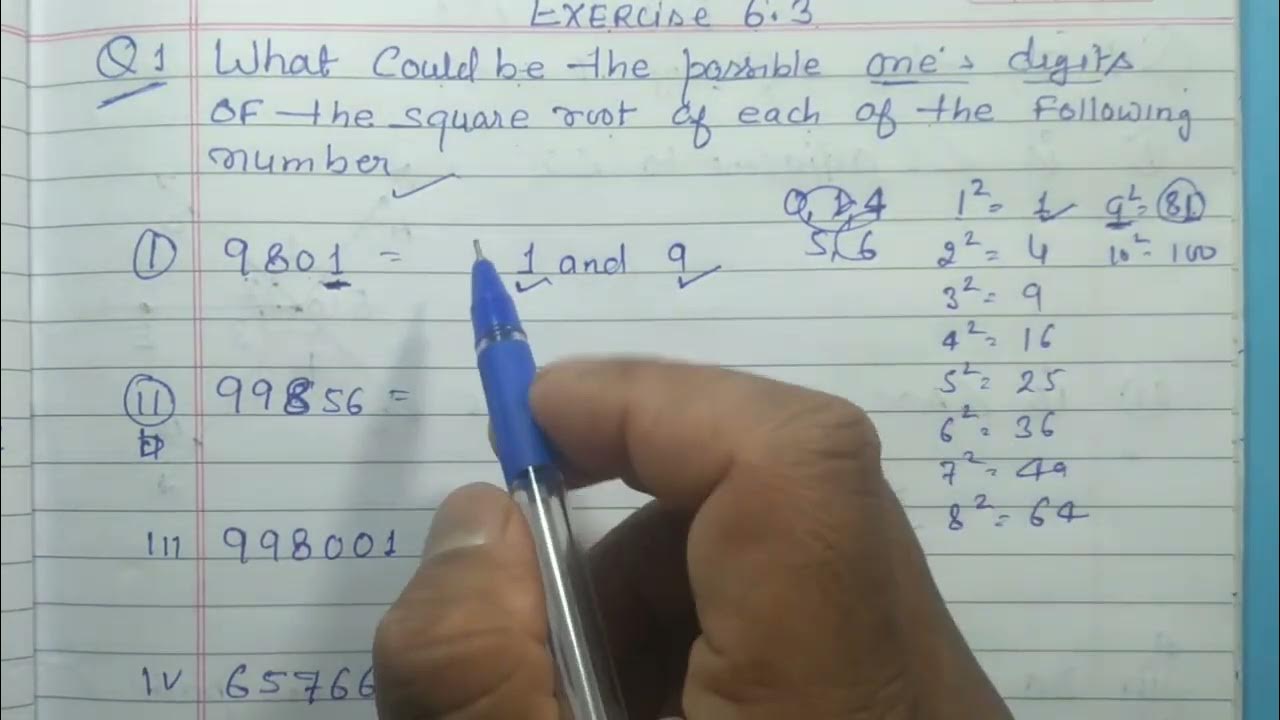 EXERCISE 6.3
Q1 What could be the possible one's digits
OF the square root of each of the Following
number
I 9801 = 1 and 9
II 99856 =
III 998001
IV 65766
5, 6
1² = 1
2² = 4
3² = 9
4² = 16
5² = 25
6² = 36
7² = 49
8² = 64
9² = 81
10² = 100